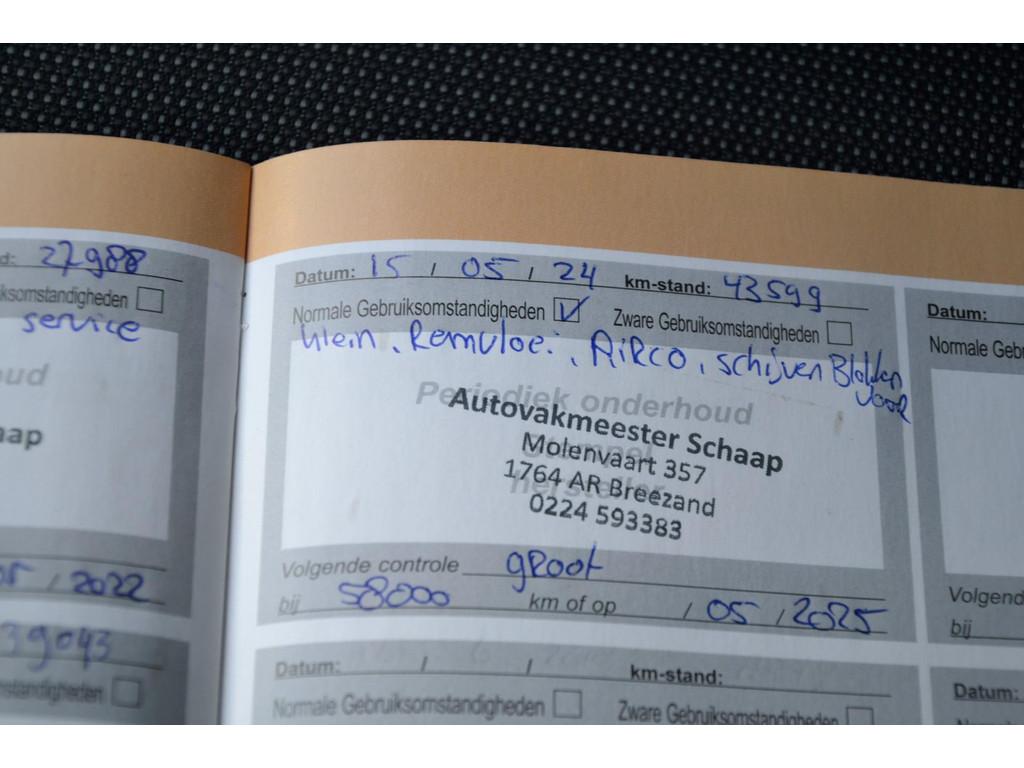 d: 27988
ksomstandigheden
service
oud
aap
05 / 2022
39043
standigheden
Datum: 15 / 05 / 24 km-stand: 43599
Normale Gebruiksomstandigheden Zware Gebruiksomstandigheden
klein, Remvloei., AIRCO, schijven Blokken
voor
Periodiek onderhoud
Stempel
hersteller
Autovakmeester Schaap
Molenvaart 357
1764 AR Breezand
0224 593383
Volgende controle groot
bij 58000 km of op / 05 / 2025
Datum: / / km-stand:
Normale Gebruiksomstandigheden Zware Gebruiksomstandigheden
Datum:
Normale Gebr
Volgend
bij
Datum: